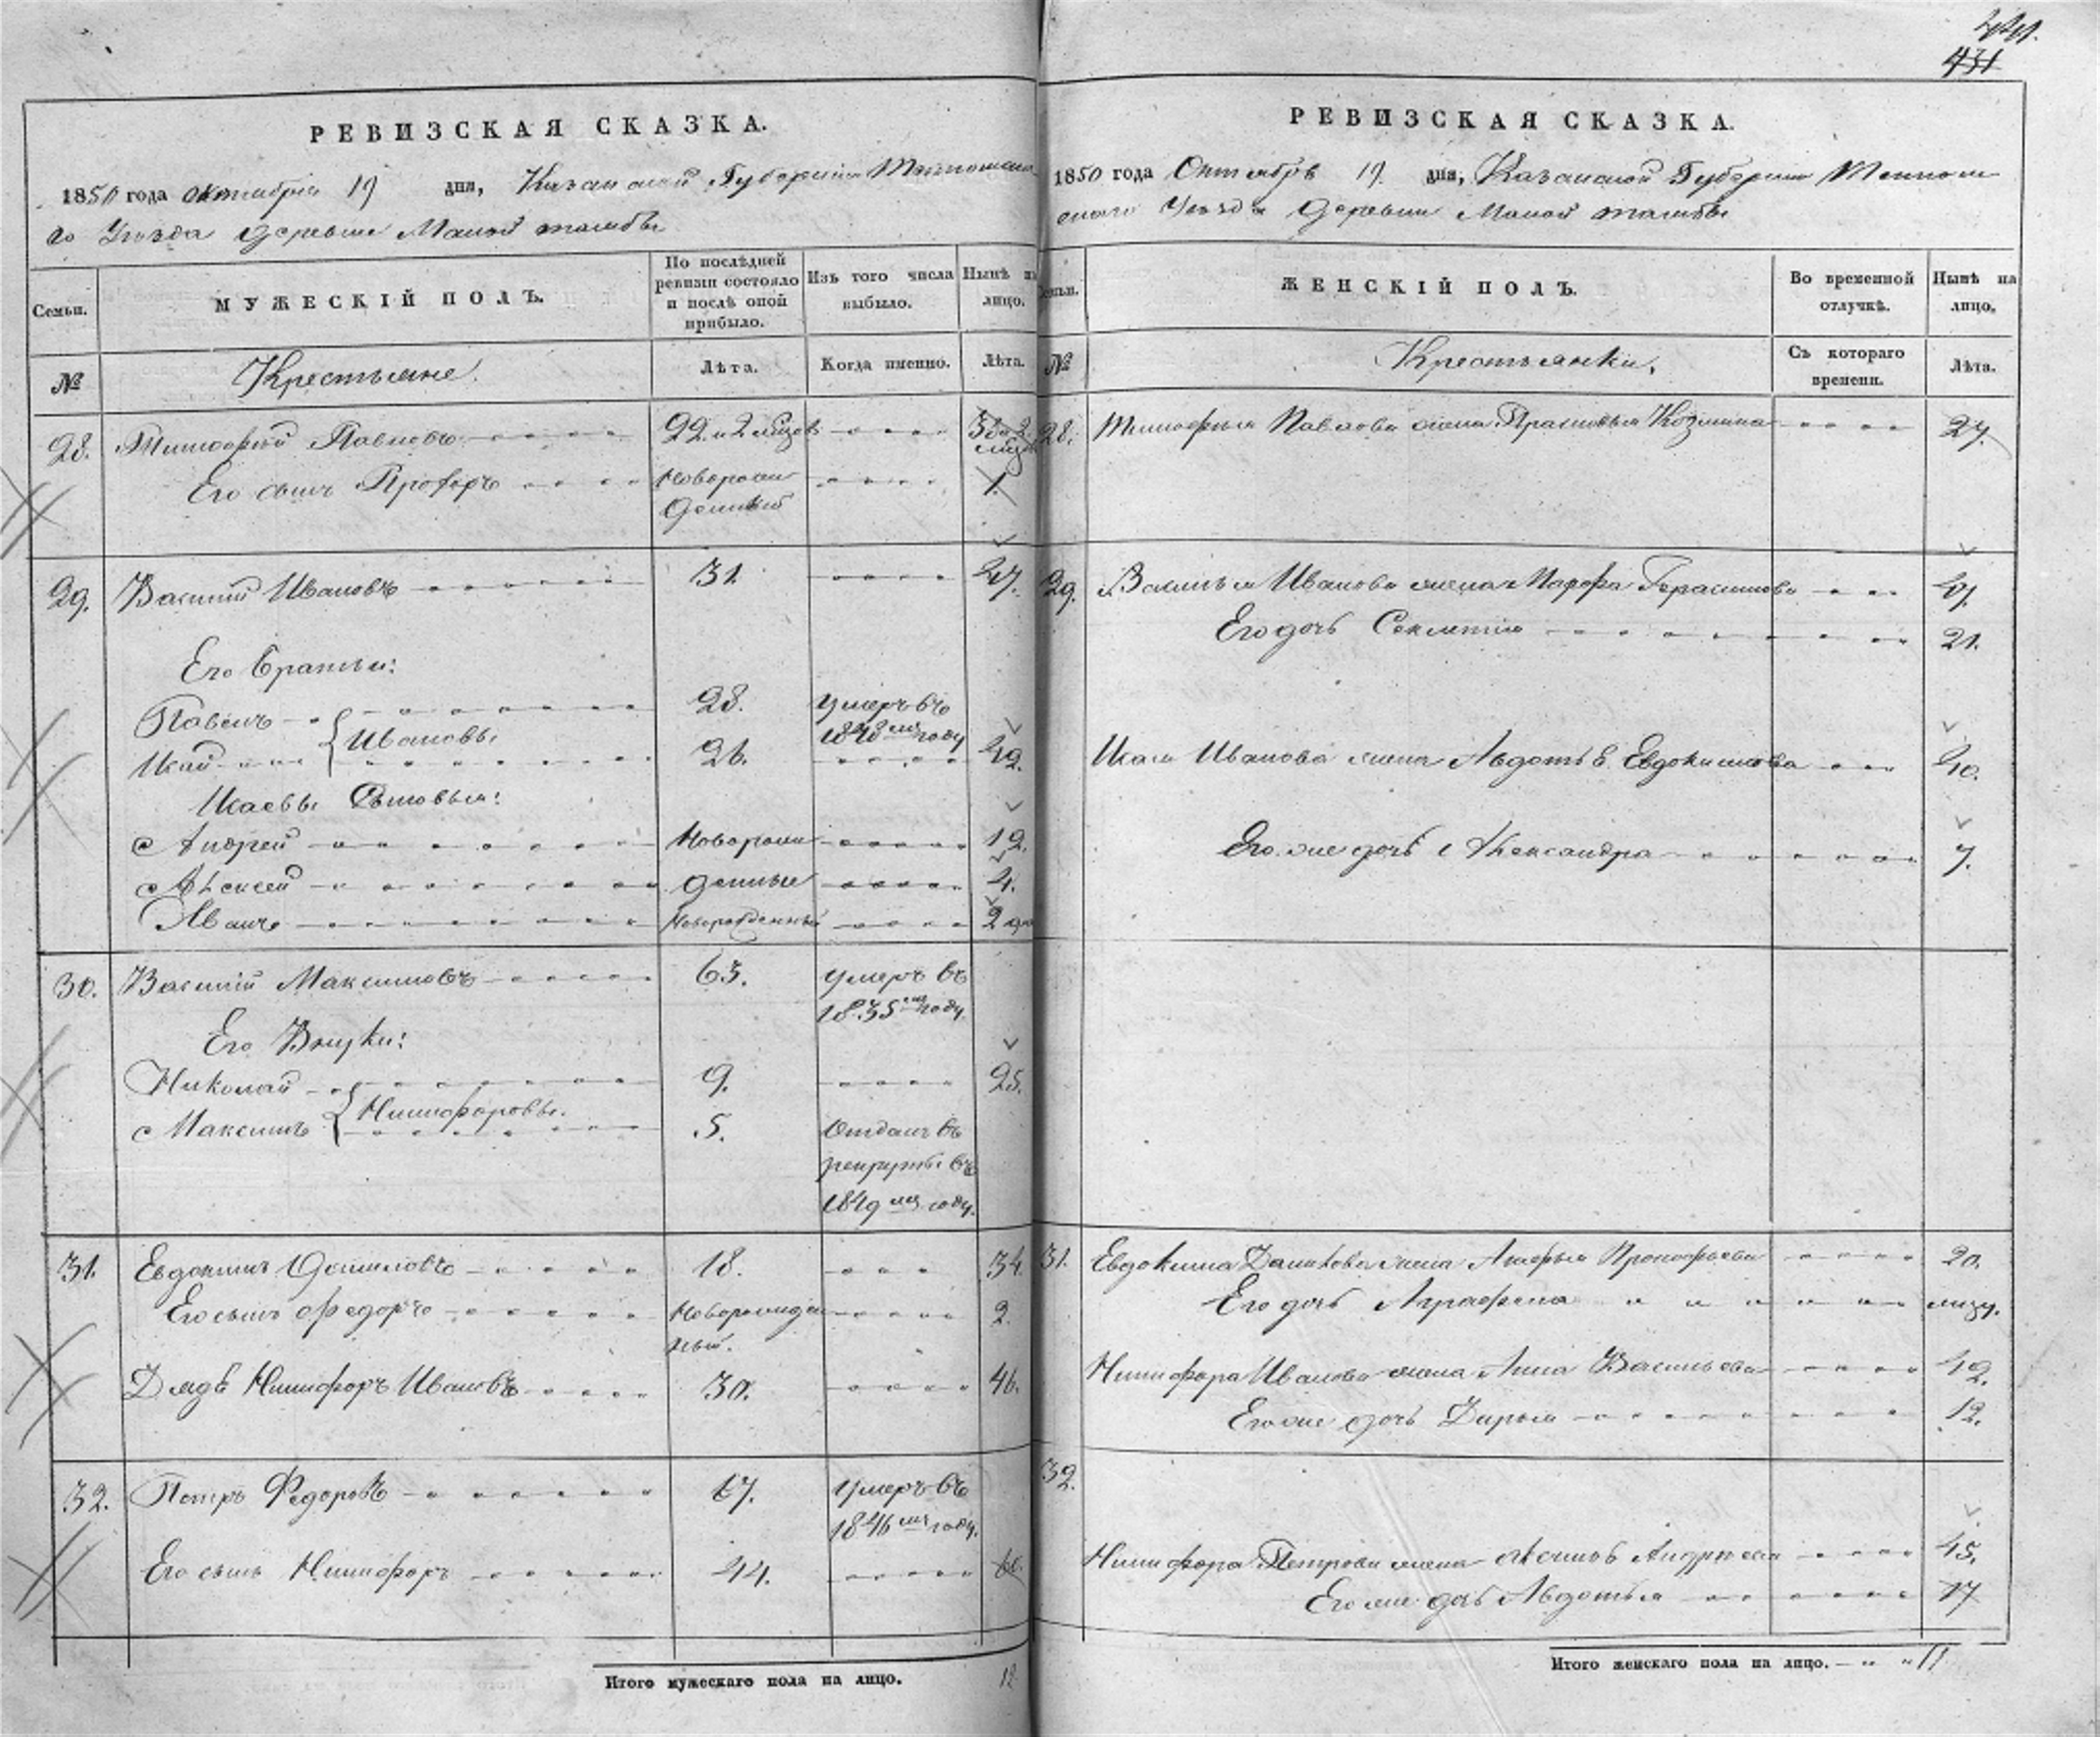 РЕВИЗСКАЯ СКАЗКА.
1850 года октября 19 дня, Казанской Губернии
го Уезда деревни Малой
Семьи.
МУЖЕСКІЙ ПОЛЪ.
По послѣдней ревизіи состояло и послѣ оной прибыло.
Изъ того числа выбыло.
Нынѣ на лицо.
№
Крестьяне.
Лѣта.
Когда именно.
Лѣта.
28. Тимофей Павловъ 22 и 2 месяцов
Его сынъ Профоръ Новорож 1.
денный
29. Василий Ивановъ 31 47.
Его Братья:
Павелъ 28. умеръ въ
Ивановы 1848мъ году
Исай 26. 42.
Исаевы Сыновья:
Андрей Новорож 12.
Алексей денные 4.
Иванъ Новорожденный
30. Василий Максимовъ 63. умеръ въ
1835мъ году.
Его Внуки:
Николай 9. 25.
Никифоровы.
Максимъ 5. Отданъ въ
рекруты въ
1849мъ году.
31. Евдокимъ Даниловъ 18. 34.
Его сынъ Федоръ Новорожден 2.
ный.
Дядя Никифоръ Ивановъ 30. 46.
32. Петръ Федоровъ 67. Умеръ въ
1846мъ году.
Его сынъ Никифоръ 44. 60.
Итого мужескаго пола на лицо. 12
431
РЕВИЗСКАЯ СКАЗКА.
1850 года Октября 19 дня, Казанской Губернии
скаго Уезда деревни Малой
Семьи.
ЖЕНСКІЙ ПОЛЪ.
Во временной отлучкѣ.
Нынѣ на лицо.
№
Крестьянки.
Съ котораго времени.
Лѣта.
28. Тимофея Павлова жена Прасковья Козмина 27.
29. Василья Иванова жена Марфа Герасимова 47.
Его дочь Секлетия 21.
Исая Иванова жена Авдотья Евдокимова 40.
Его же дочь Александра 7.
31. Евдокима Данилова жена Прокофьева 20.
Его дочь Аграфена
Никифора Иванова жена Анна Васильева 42.
Его же дочь Дарья 12.
32.
Никифора Петрова жена Аксинья Андреева 45.
Его же дочь Авдотья 17
Итого женскаго пола на лицо. — „ „ 11